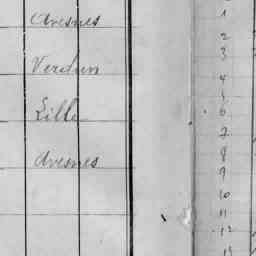 Avesnes
1
2
Verdun
3
4
5
Lille
6
7
Avesnes
8
9
10
11
12
13